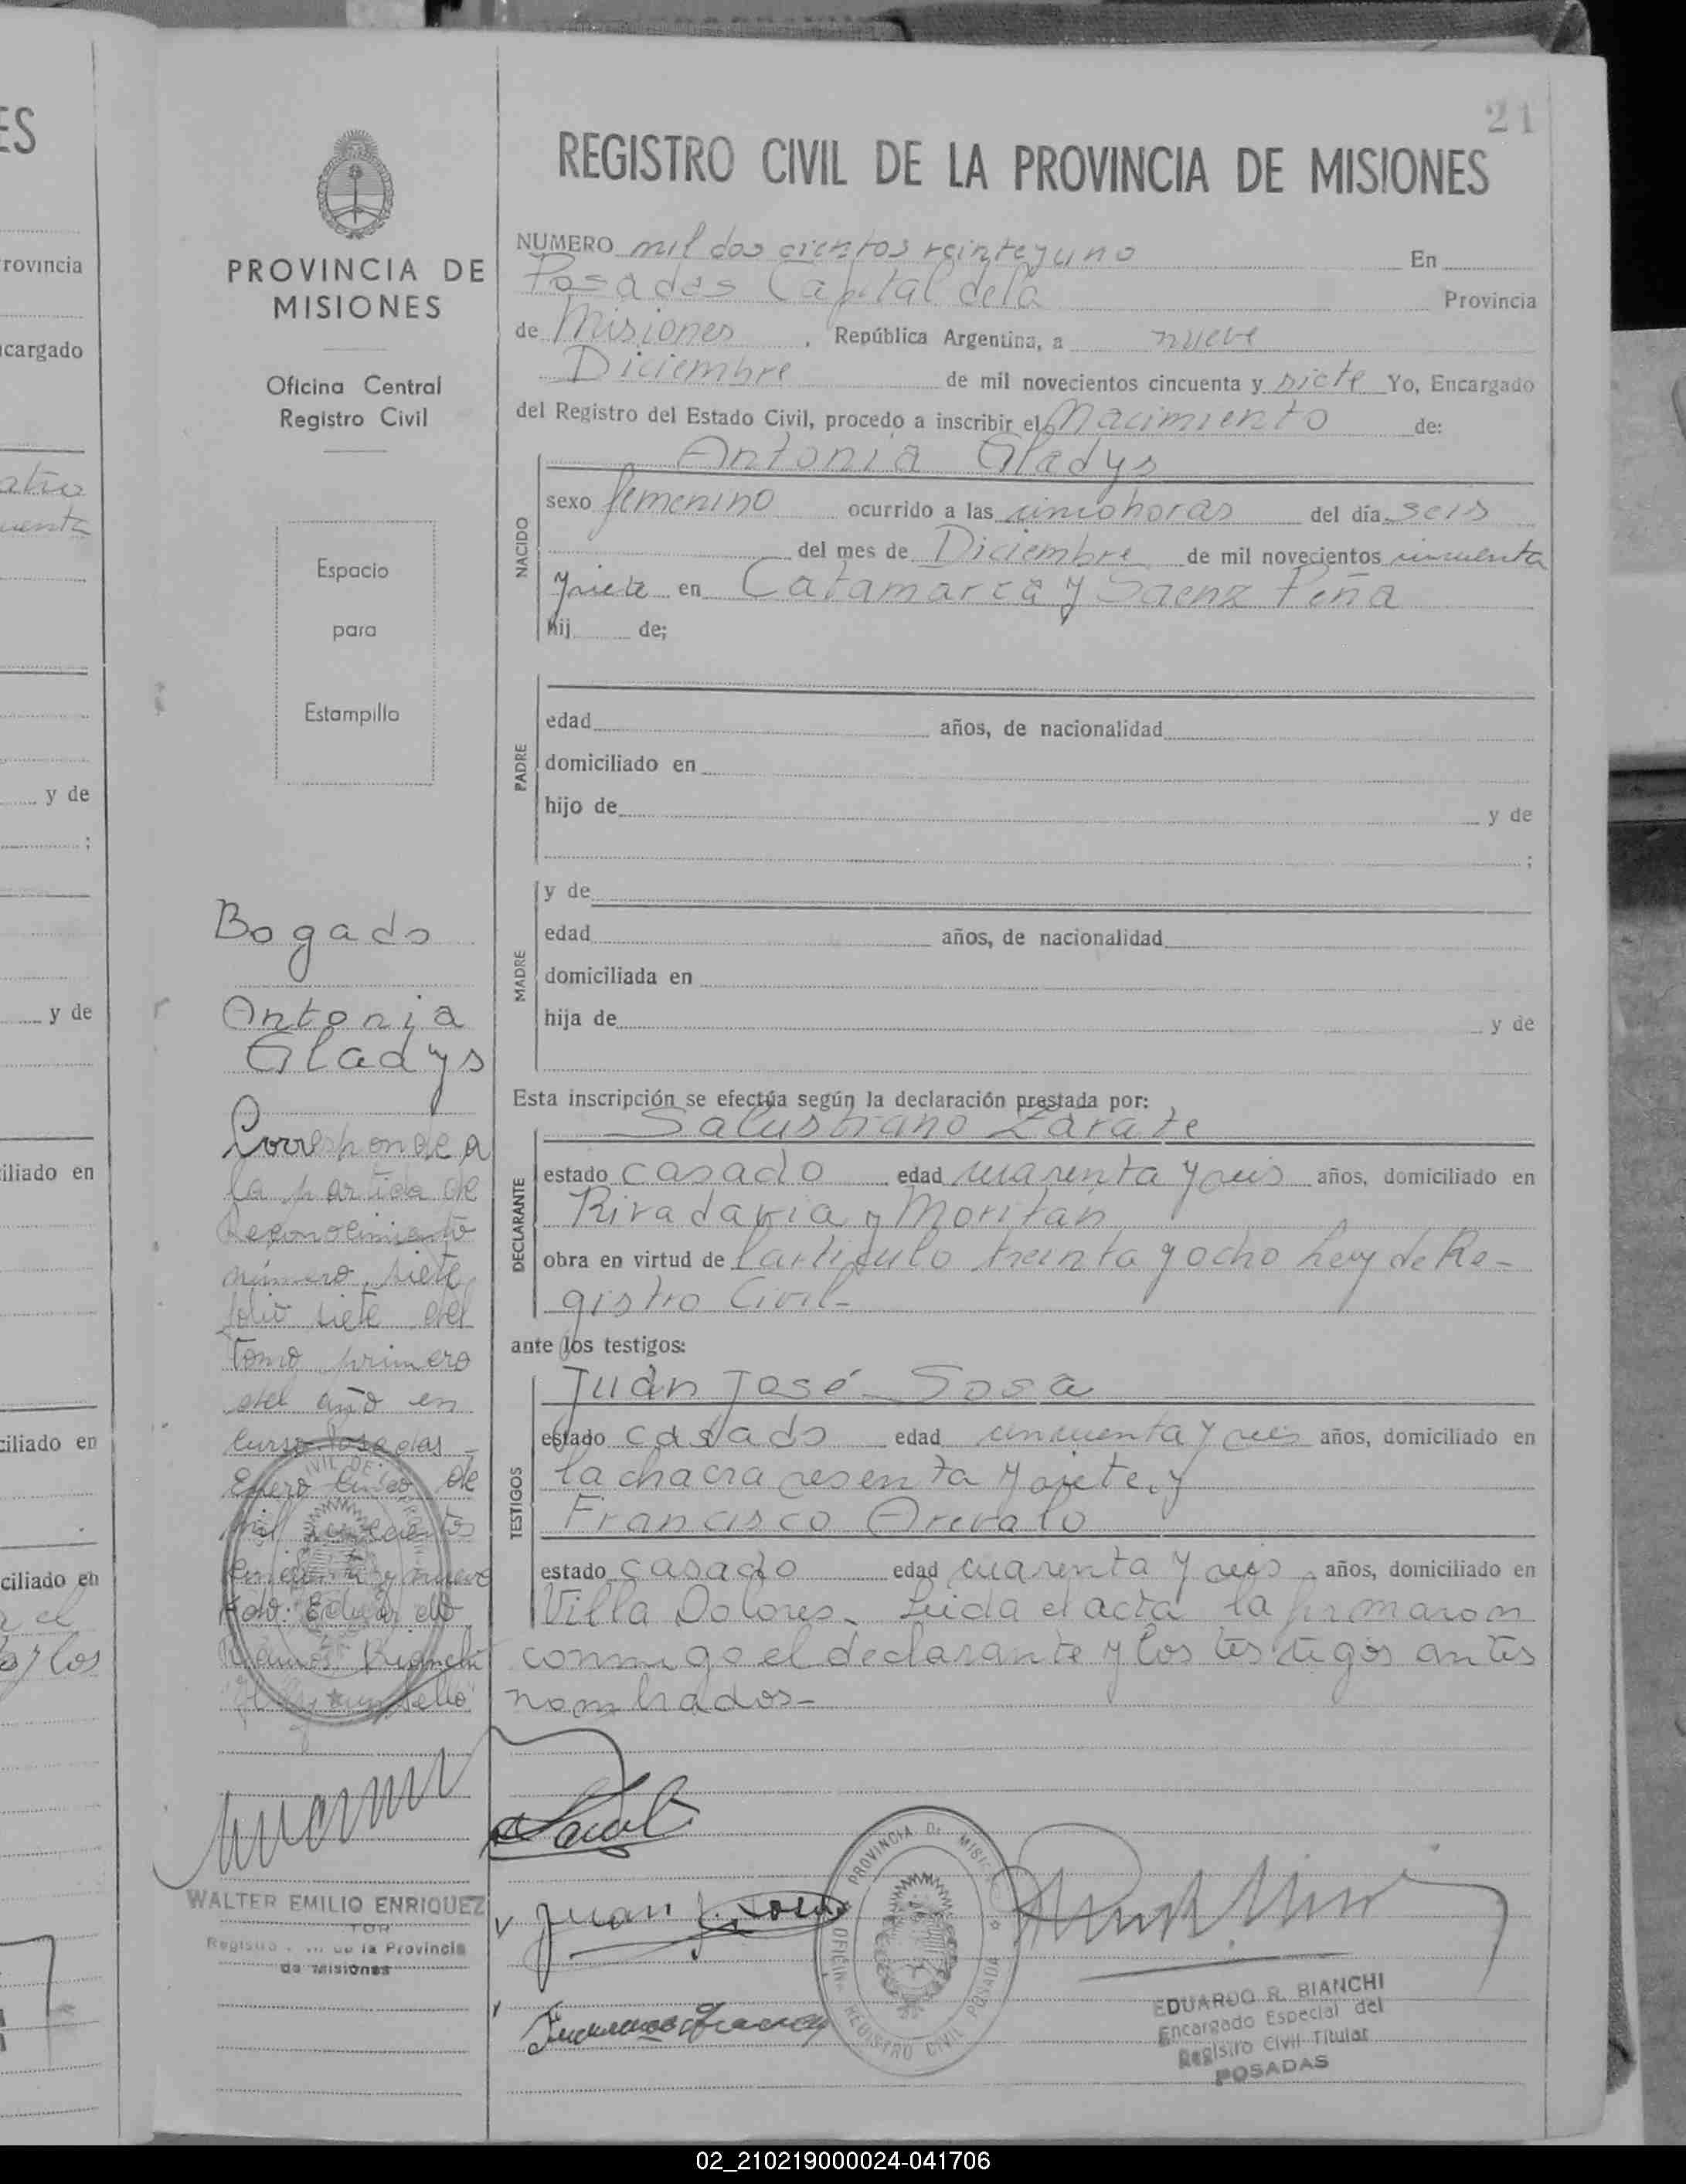 21
REGISTRO CIVIL DE LA PROVINCIA DE MISIONES
PROVINCIA DE
MISIONES
Oficina Central
Registro Civil
Espacio
para
Estampilla
Bogado
Antonia
Gladys
Corresponde a
la partida de
Reconocimiento
número siete
folio siete del
tomo primero
del año en
curso Posadas
Enero cinco de
mil novecientos
cincuenta y nueve
Fdo: Eduardo
Ramón Bianchi
"Hay un sello"
WALTER EMILIO ENRIQUEZ
TOR
Registro de la Provincia
de Misiones
NUMERO mil dos cientos veinteyuno En
Posadas Capital dela Provincia
de Misiones, República Argentina, a nueve
Diciembre de mil novecientos cincuenta y siete Yo, Encargado
del Registro del Estado Civil, procedo a inscribir el Nacimiento de:
Antonia Gladys
NACIDO
sexo femenino ocurrido a las cinco horas del día seis
del mes de Diciembre de mil novecientos cincuenta
y siete en Catamarca y Saenz Peña
hij de;
PADRE
edad años, de nacionalidad
domiciliado en
hijo de y de
;
MADRE
y de
edad años, de nacionalidad
domiciliada en
hija de y de
Esta inscripción se efectúa según la declaración prestada por:
Salustiano Zarate
DECLARANTE
estado casado edad cuarenta y seis años, domiciliado en
Rivadavia y Moritan
obra en virtud de l'artículo treinta y ocho Ley de Re-
gistro Civil-
ante los testigos:
TESTIGOS
Juan José Sosa
estado casado edad cincuenta y seis años, domiciliado en
la chacra sesenta y siete, y
Francisco Arevalo
estado casado edad cuarenta y seis años, domiciliado en
Villa Dolores. Leida el acta la firmaron
conmigo el declarante y los testigos antes
nombrados-
Juan J. Sosa
PROVINCIA DE MISIONES
OFICINA REGISTRO CIVIL POSADAS
EDUARDO R. BIANCHI
Encargado Especial del
Registro Civil Titular
POSADAS
ES
rovincia
cargado
y de
;
y de
iliado en
ciliado en
ciliado en
02_210219000024-041706